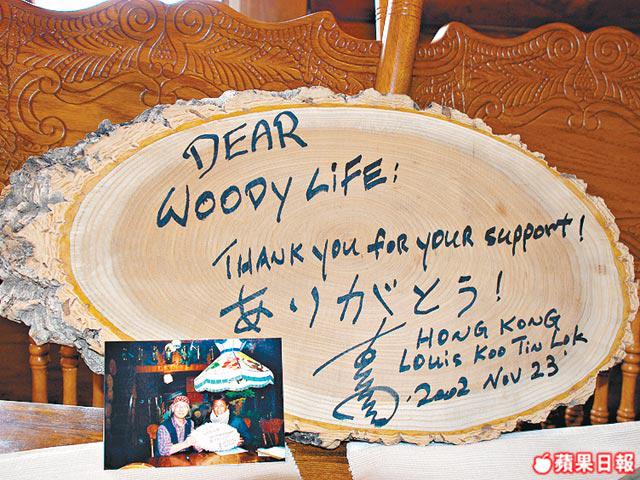 DEAR
WOODY LiFE:
THANK you foR youR suppoRt!
ありがとう!
HONG KONG
Louis Koo Tin Lok
2002 Nov 23'
蘋果日報